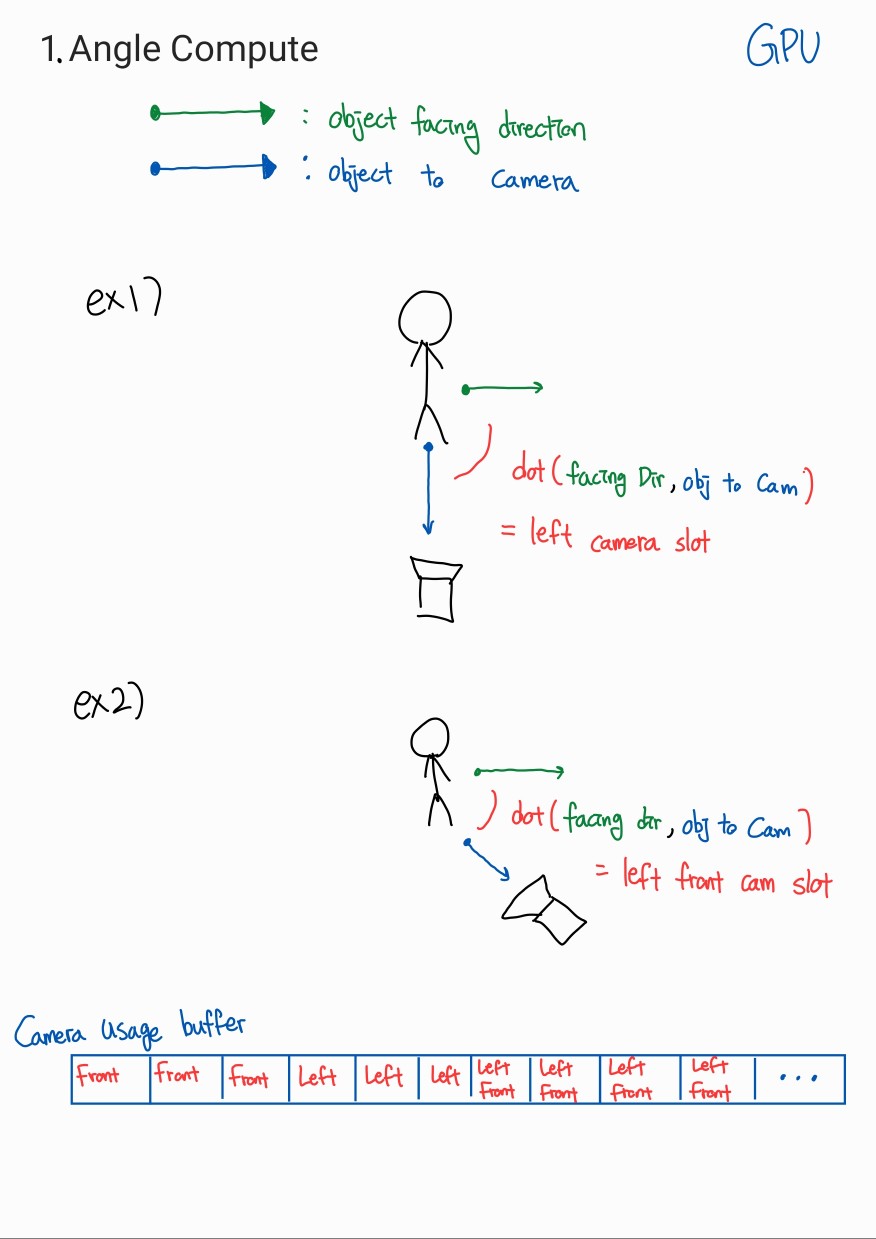 1. Angle Compute
GPU
: object facing direction
: object to camera
ex1)
dot(facing Dir, obj to Cam)
= left camera slot
ex2)
dot(facing dir, obj to Cam)
= left front cam slot
Camera usage buffer
Front Front Front Left Left Left Left Front Left Front Left Front Left Front ...